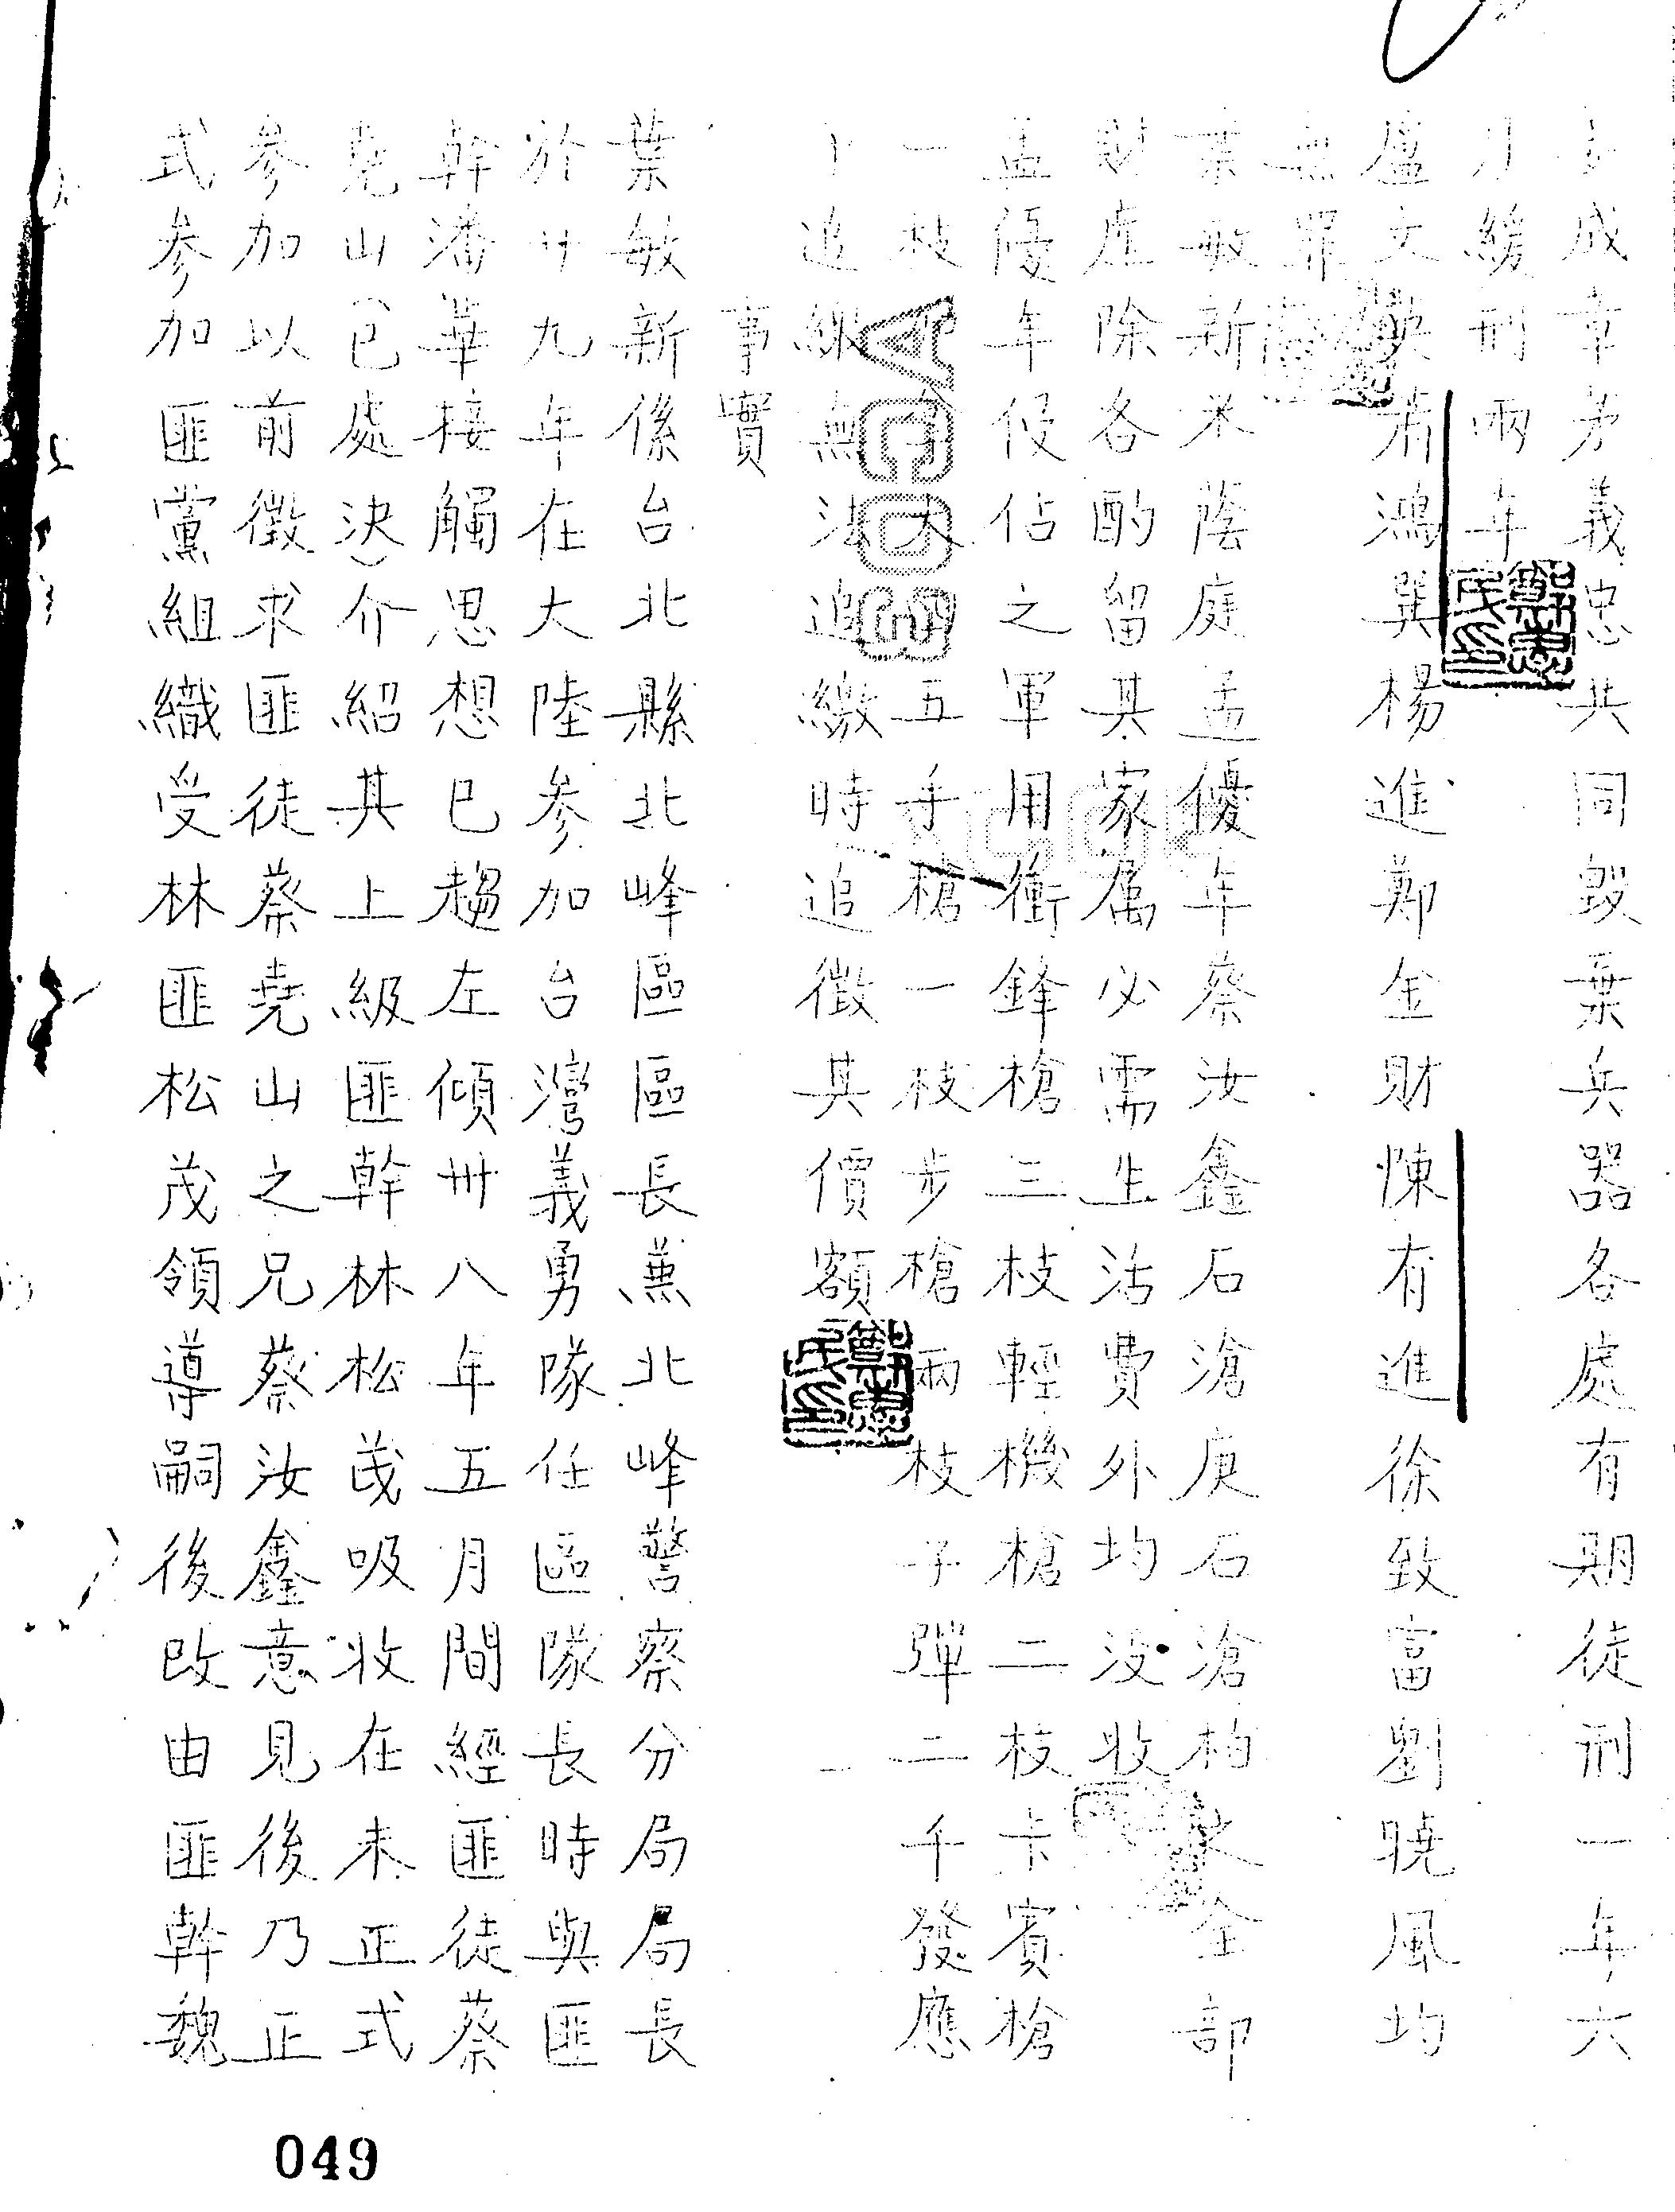 成章矛義忠共同毀棄兵器各處有期徒刑一年六
月緩刑兩年
盧文 肅鴻巽楊進鄭金財陳有進徐致富劉曉風均
無罪
葉敏新米蔭庭孟優年蔡汝鑫石滄庚石滄柏之全部
財產除各酌留其家屬必需生活費外均沒收
孟優年侵佔之軍用衝鋒槍三枝輕機槍二枝卡賓槍
一枝 大 五手槍一枝步槍兩枝子彈二千發應
予追繳無法追繳時追徵其價額
事實
葉敏新係台北縣北峰區區長蕙北峰警察分局局長
於廿九年在大陸参加台灣義勇隊任區隊長時與匪
幹潘華接觸思想已趨左傾卅八年五月間經匪徒蔡
堯山(已處決)介紹其上級匪幹林松茂吸收在未正式
参加以前徵求匪徒蔡堯山之兄蔡汝鑫意見後乃正
式参加匪黨組織受林匪松茂領導嗣後改由匪幹魏
鄭忠民印
鄭忠民印
049